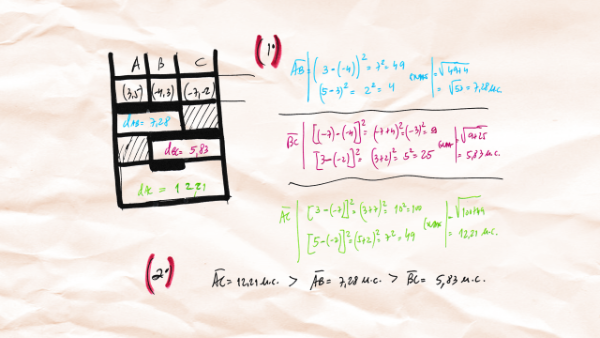 A B C
(3,5) (-4,3) (-7,-2)
dAB=7,28
dBC= 5,83
dAC = 12,21
(1º)
AB (3-(-4))²=7²=49
(5-3)²= 2²= 4
=√49+4
= √53= 7,28 u.c.
BC [(-7)-(-4)]²=(-7+4)²=(-3)²=
[3-(-2)]²= (3+2)²= 5²= 25
=√9+25
= 5,83 u.c.
AC [3-(-7)]²=(3+7)²= 10²=100
=(5+2)²= 7²= 49
= 12,21 u.c.
(2º) AC= 12,21 u.c. > AB= 7,28 u.c. > BC= 5,83 u.c.